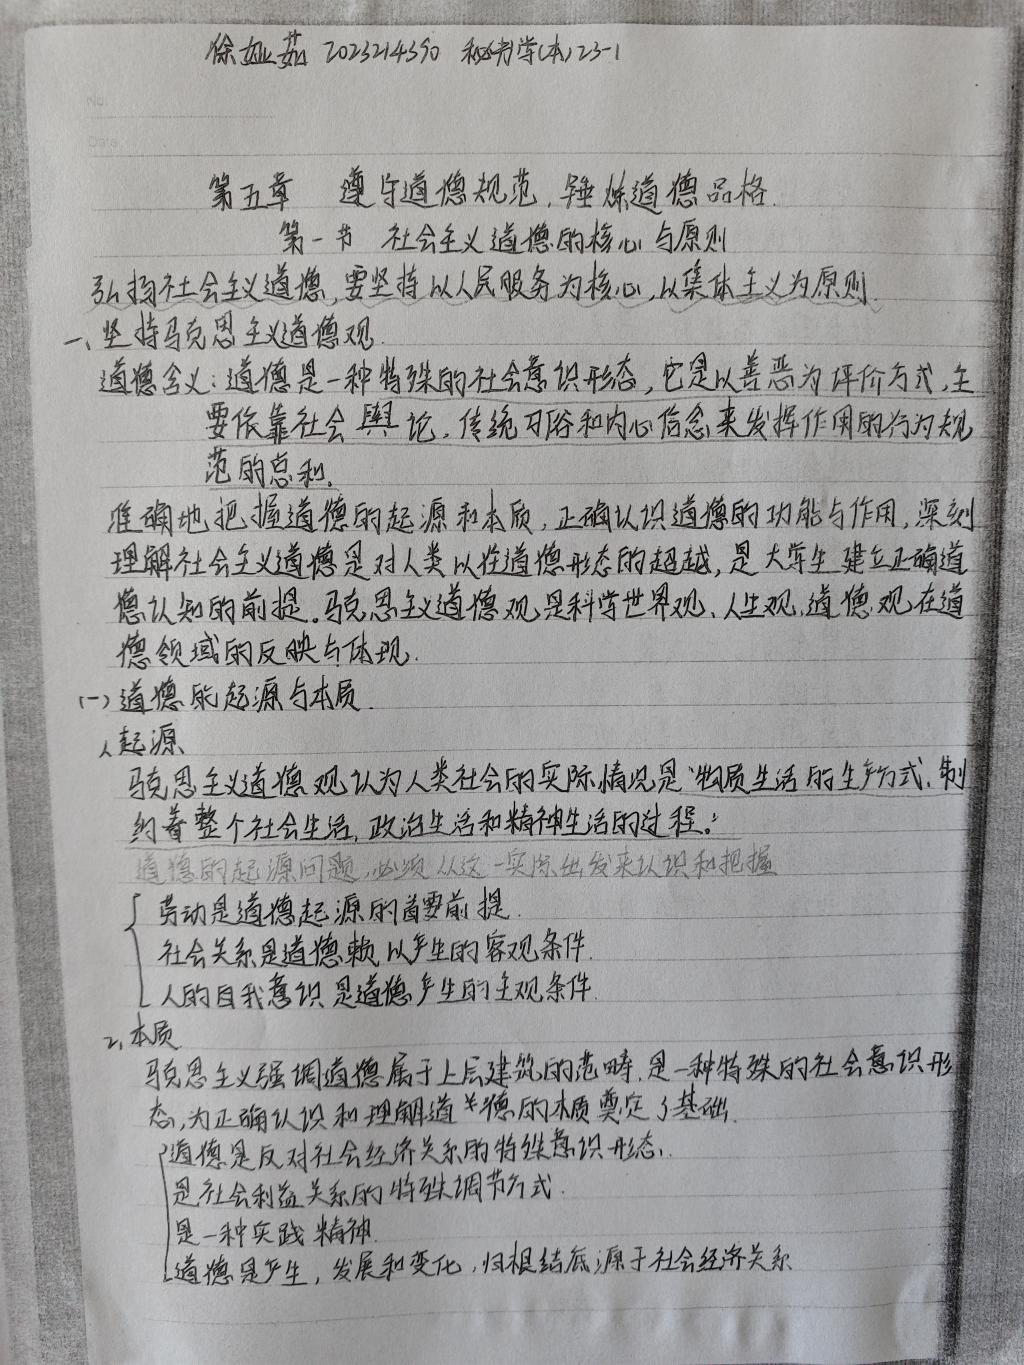 徐娅茹 2023214390 秘书学(本)23-1
第五章 遵守道德规范,锤炼道德品格.
第一节 社会主义道德的核心与原则
弘扬社会主义道德,要坚持以人民服务为核心,以集体主义为原则.
一、坚持马克思主义道德观.
道德含义:道德是一种特殊的社会意识形态,它是以善恶为评价方式,主
要依靠社会舆论,传统习俗和内心信念来发挥作用的行为规
范的总和.
准确地把握道德的起源和本质,正确认识道德的功能与作用,深刻
理解社会主义道德是对人类以往道德形态的超越,是大学生建立正确道
德认知的前提。马克思主义道德观是科学世界观、人生观、道德观在道
德领域的反映与体现.
(一)道德的起源与本质.
1、起源
马克思主义道德观认为人类社会的实际情况是"物质生活的生产方式,制
约着整个社会生活,政治生活和精神生活的过程。"
道德的起源问题,必须从这一实际出发来认识和把握
劳动是道德起源的首要前提.
社会关系是道德赖以产生的客观条件.
人的自我意识是道德产生的主观条件.
2、本质
马克思主义强调道德属于上层建筑的范畴,是一种特殊的社会意识形
态,为正确认识和理解道德的本质奠定了基础.
道德是反对社会经济关系的特殊意识形态.
是社会利益关系的特殊调节方式.
是一种实践精神.
道德是产生,发展和变化,归根结底,源于社会经济关系